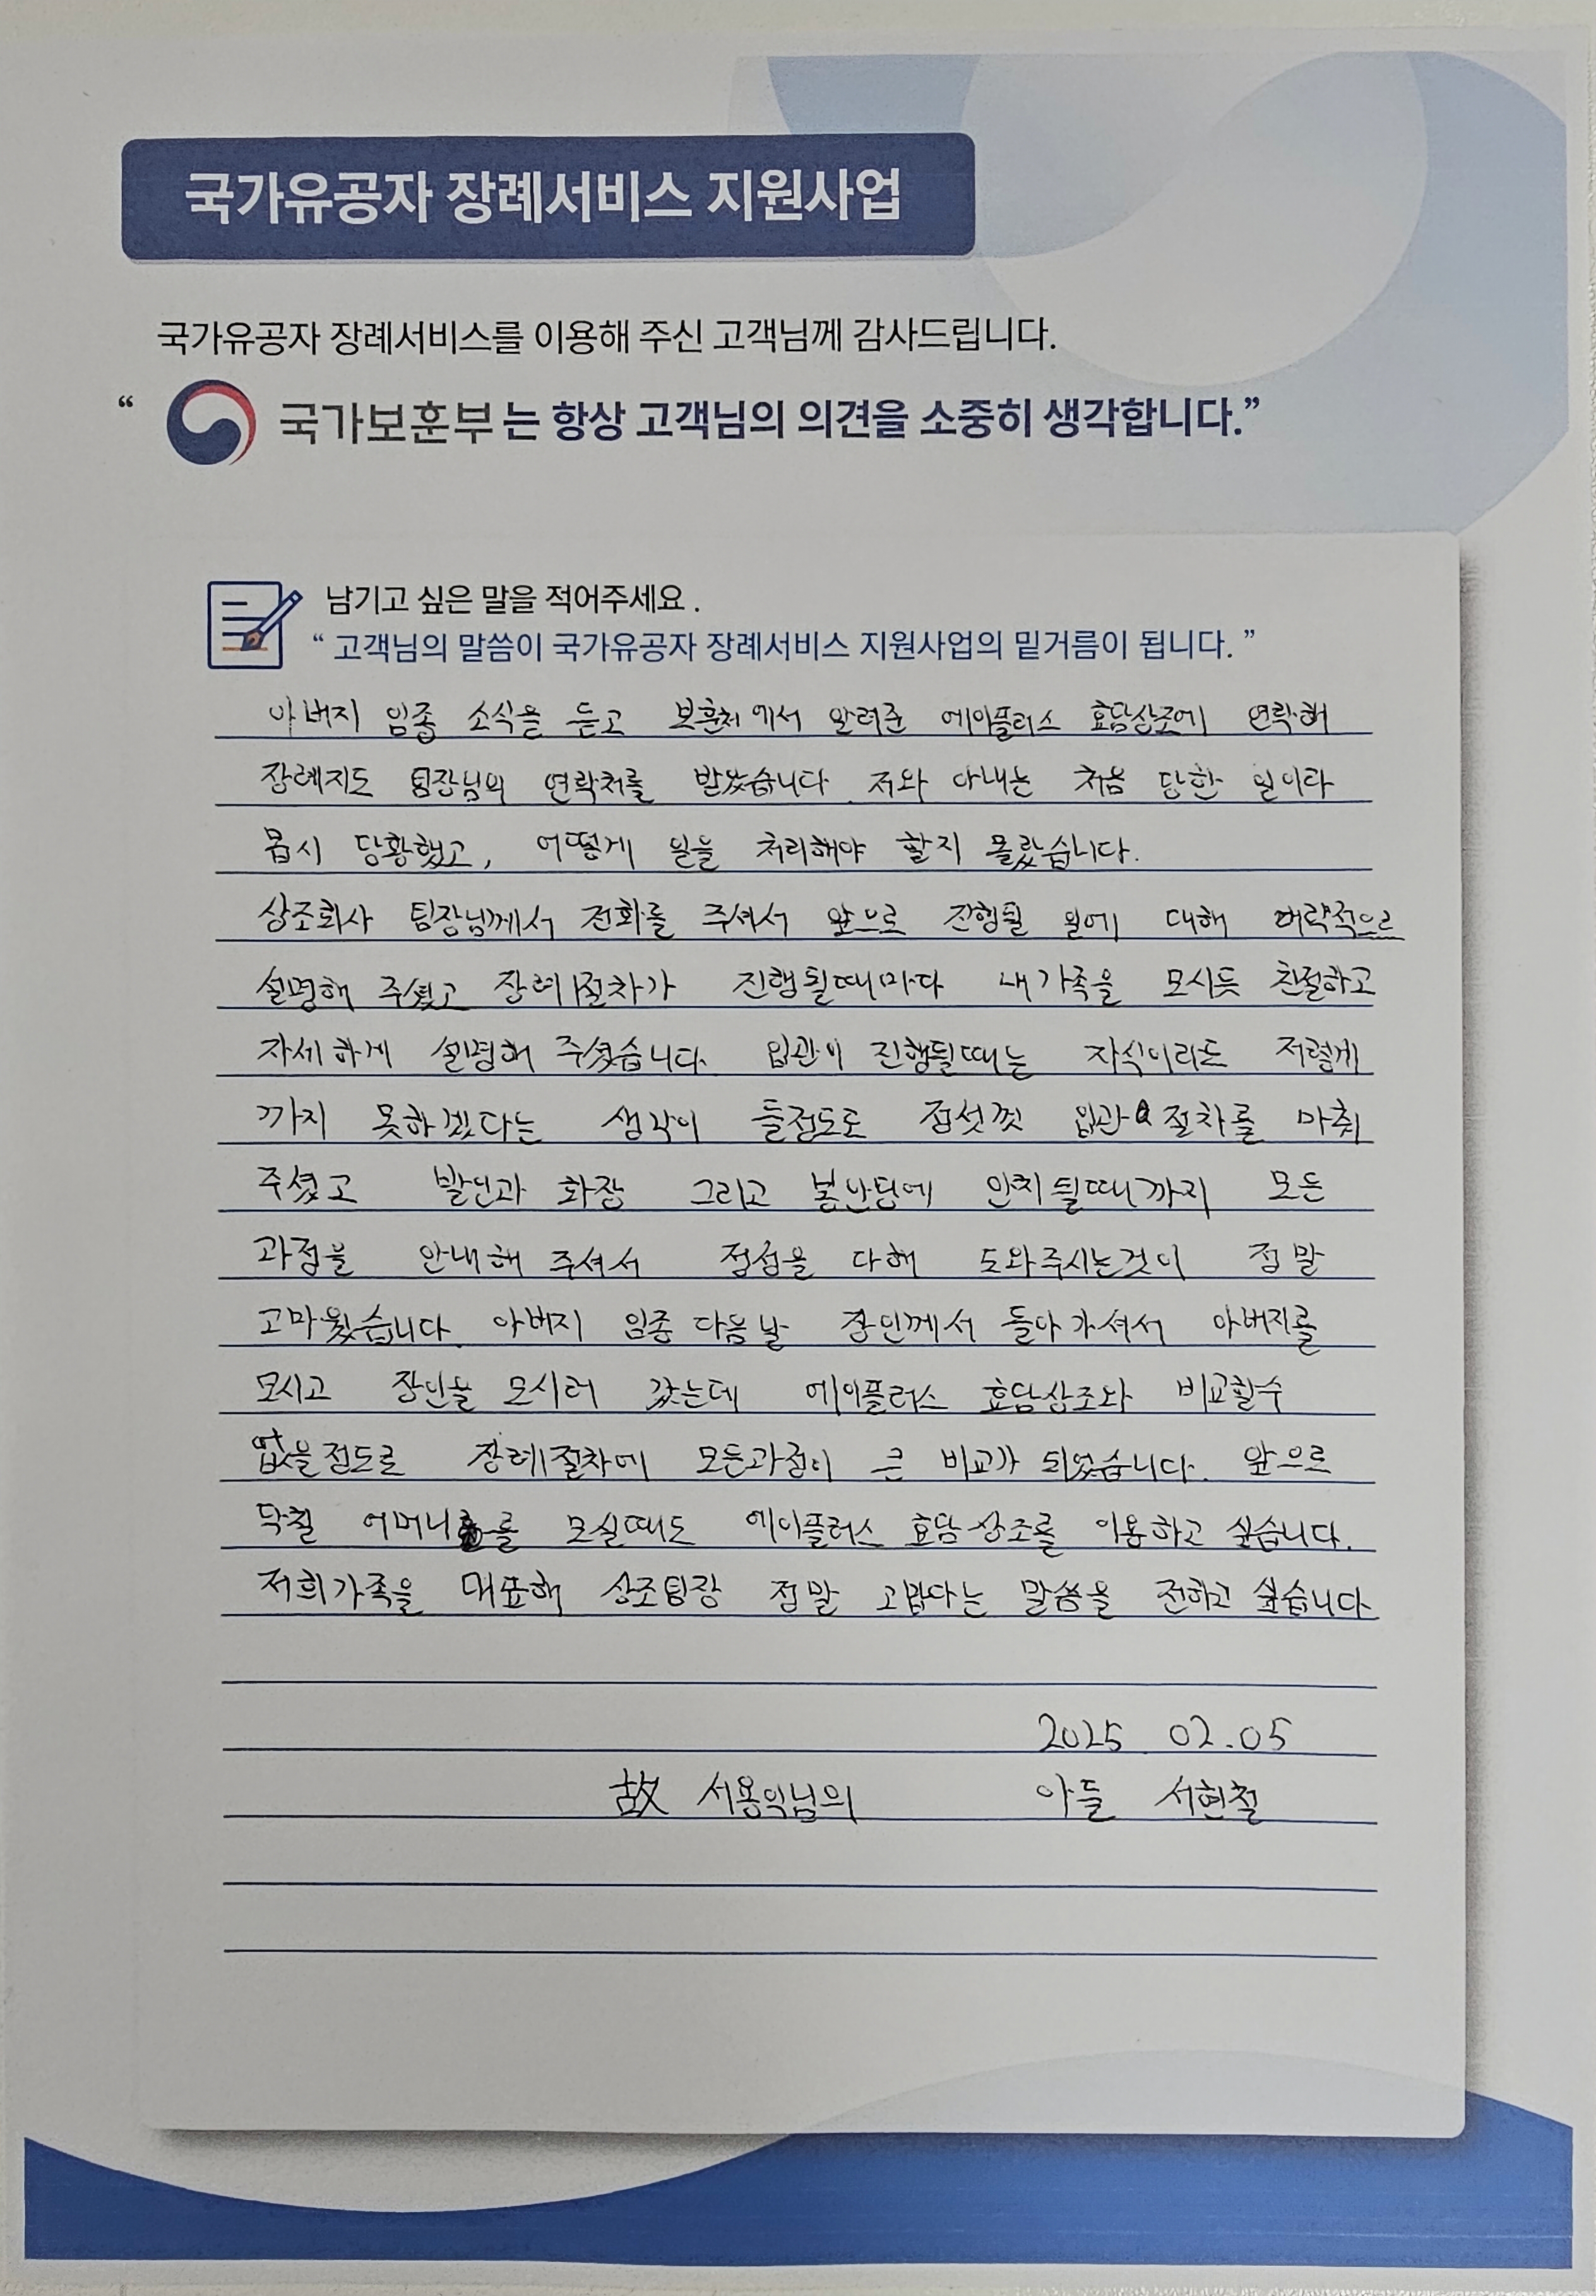 국가유공자 장례서비스 지원사업
국가유공자 장례서비스를 이용해 주신 고객님께 감사드립니다.
“ 국가보훈부는 항상 고객님의 의견을 소중히 생각합니다.”
남기고 싶은 말을 적어주세요 .
“ 고객님의 말씀이 국가유공자 장례서비스 지원사업의 밑거름이 됩니다. ”
아버지 임종 소식을 듣고 보훈처에서 알려준 에이플러스 효담상조에 연락해
장례지도 팀장님의 연락처를 받았습니다. 저와 아내는 처음 당한 일이라
몹시 당황했고, 어떻게 일을 처리해야 할지 몰랐습니다.
상조회사 팀장님께서 전화를 주셔서 앞으로 진행될 일에 대해 대략적으로
설명해 주셨고 장례절차가 진행될때마다 내가족을 모시듯 친절하고
자세하게 설명해 주셨습니다. 입관이 진행될때는 자식이라도 저렇게
까지 못하겠다는 생각이 들정도로 정성껏 입관 절차를 마춰
주셨고 발인과 화장 그리고 봉안당에 안치될때까지 모든
과정을 안내해 주셔서 정성을 다해 도와주시는것이 정말
고마웠습니다. 아버지 임종 다음날 장인께서 돌아가셔서 아버지를
모시고 장인을 모시러 갔는데 에이플러스 효담상조와 비교할수
없을정도로 장례절차에 모든과정이 큰 비교가 되었습니다. 앞으로
닥칠 어머니를 모실때도 에이플러스 효담상조를 이용하고 싶습니다.
저희가족을 대표해 상조팀장 정말 고맙다는 말씀을 전하고 싶습니다
2025 02.05
故 서용익님의 아들 서현철